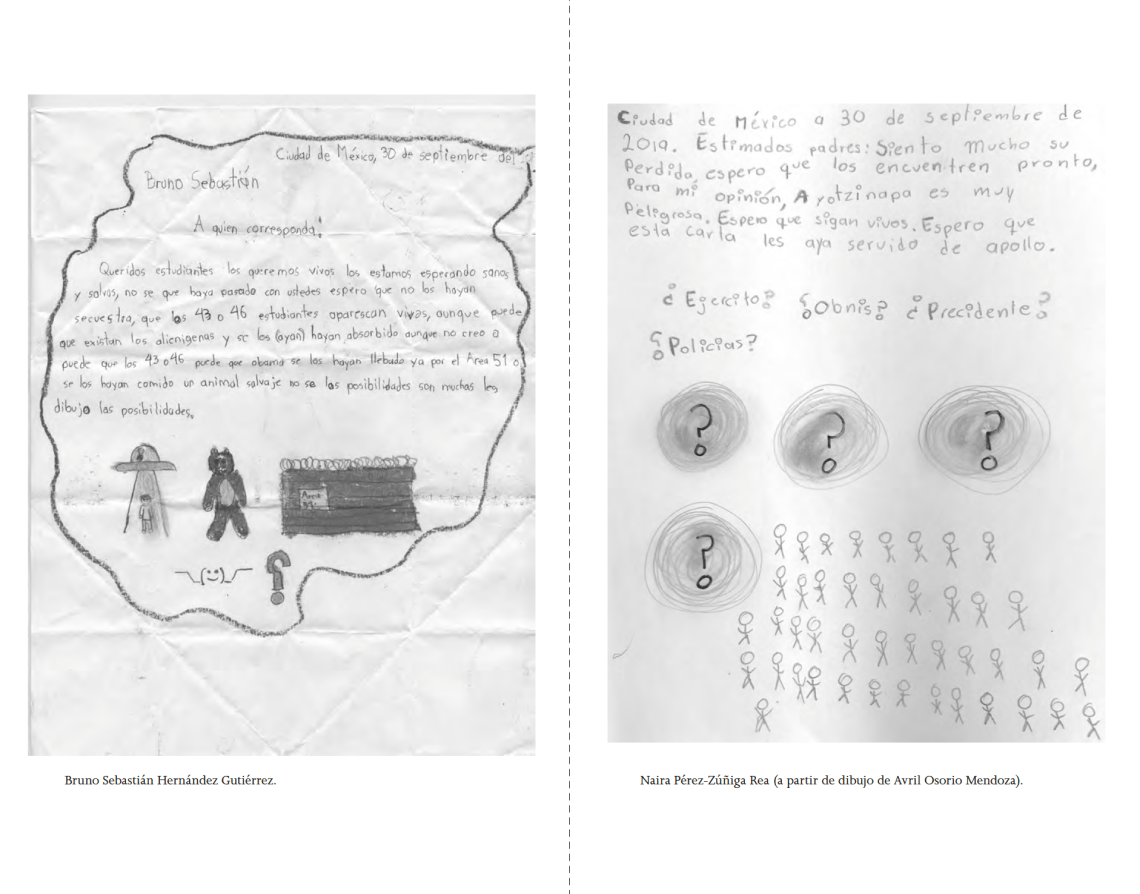 Ciudad de México, 30 de septiembre del
Bruno Sebastián
A quien corresponda!
Queridos estudiantes los queremos vivos los estamos esperando sanos
y salvos, no se que haya pasado con ustedes espero que no los hayan
secuestra, que los 43 o 46 estudiantes aparescan vivos, aunque puede
que existan los alienigenas y se los (ayan) hayan absorbido aunque no creo a
puede que los 43 o 46 puede que obama se los hayan llebado ya por el Área 51 o
se los hayan comido un animal salvaje no se las posibilidades son muchas les
dibujo las posibilidades.
¯\_(ツ)_/¯ ?
Bruno Sebastián Hernández Gutiérrez.
Ciudad de México a 30 de septiembre de
2019. Estimados padres: Siento mucho su
Perdida, espero que los encuentren pronto,
Para mi opinión, Ayotzinapa es muy
Peligrosa. Espero que sigan vivos. Espero que
esta carta les aya servido de apollo.
¿Ejercito? ¿Obnis? ¿Precidente?
¿Policias?
? ? ?
?
Naira Pérez-Zúñiga Rea (a partir de dibujo de Avril Osorio Mendoza).